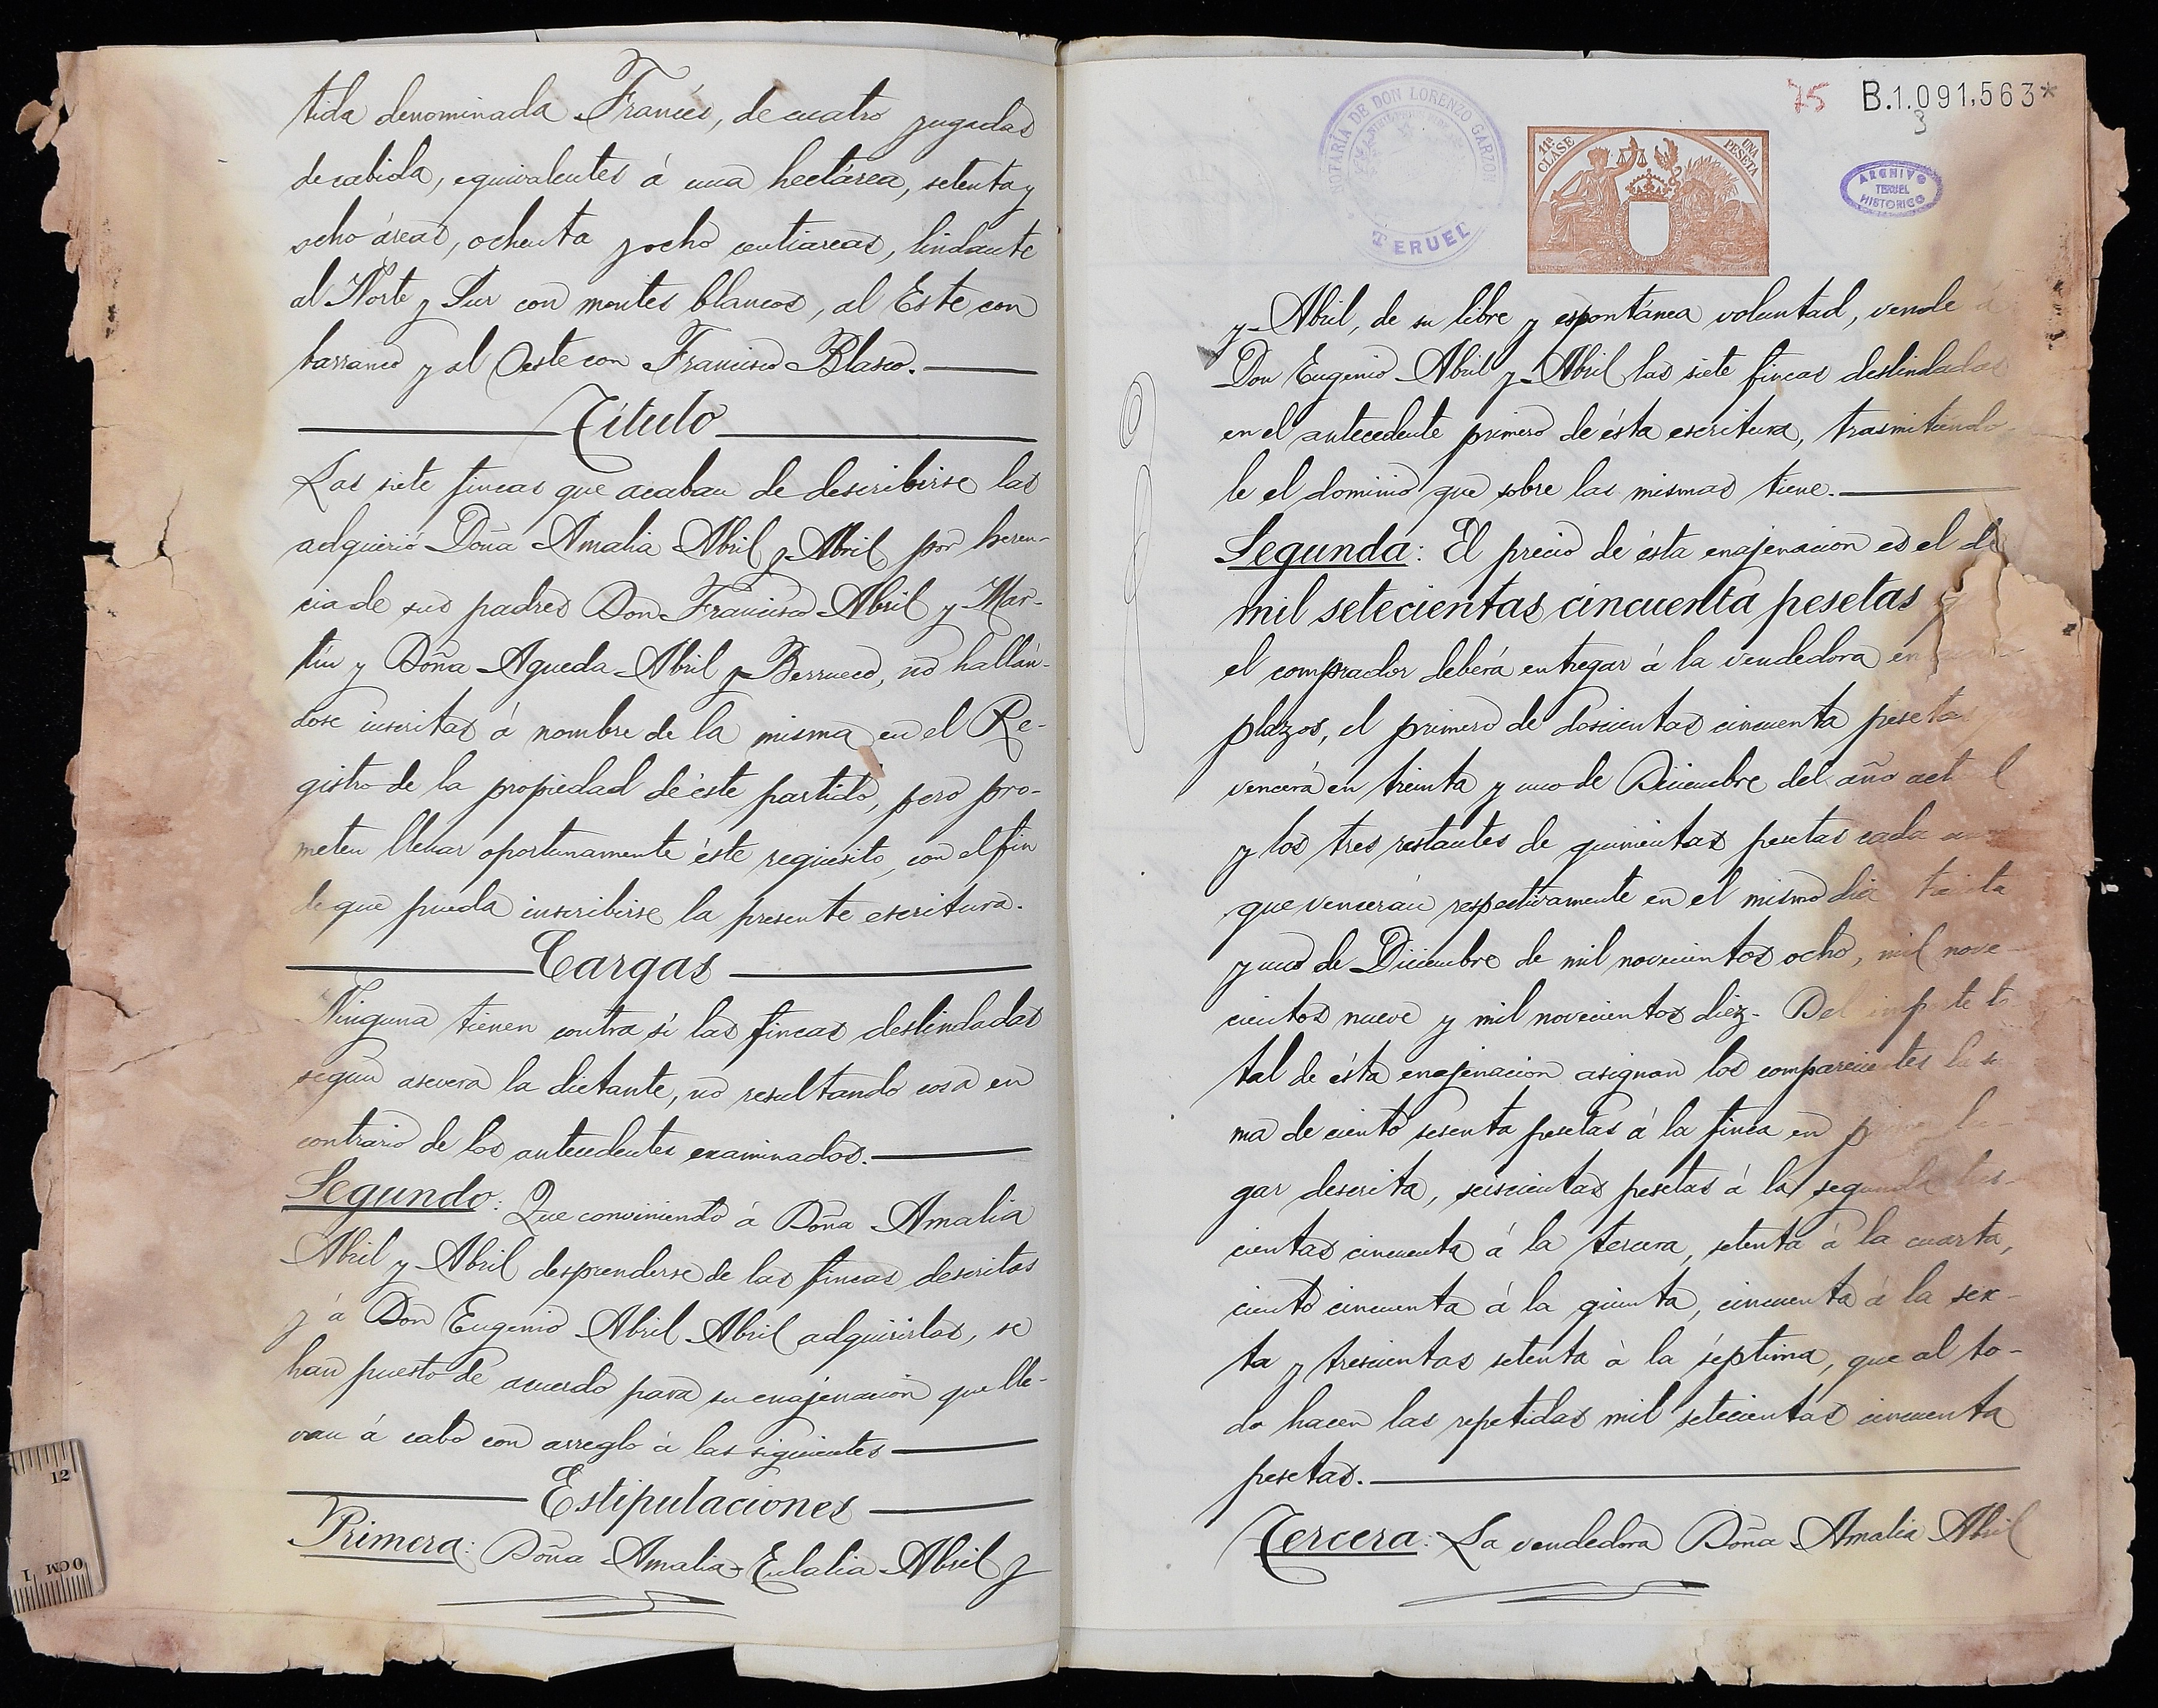 tida denominada Francés, de cuatro yugadas
de cabida, equivalentes á una hectárea, setenta y
ocho áreas, ochenta y ocho centiareas, lindante
al Norte y Sur con montes blancos, al Este con
barranco y al Oeste con Francisco Blasco.
Título
Las siete fincas que acaban de describirse las
adquirió Doña Amalia Abril y Abril por heren-
cia de sus padres Don Francisco Abril y Mar-
tín y Doña Agueda Abril y Berrueco, no hallán-
dose inscritas á nombre de la misma en el Re-
gistro de la propiedad de éste partido, pero pro-
meten llenar oportunamente éste requisito, con el fin
de que pueda inscribirse la presente escritura.
Cargas
Ninguna tienen contra sí las fincas deslindadas
según asevera la dictante, no resultando cosa en
contrario de los antecedentes examinados.
Segundo: Que conviniendo á Doña Amalia
Abril y Abril desprenderse de las fincas descritas
y á Don Eugenio Abril Abril adquirirlas, se
han puesto de acuerdo para su enajenación que lle-
van á cabo con arreglo á las siguientes
Estipulaciones
Primera: Doña Amalia Eulalia Abril y
NOTARÍA DE DON LORENZO GARZON
TERUEL
75
B.1.091,563*
3
11ª CLASE
UNA PESETA
ARCHIVO
TERUEL
HISTORICO
y Abril, de su libre y espontánea voluntad, vende á
Don Eugenio Abril y Abril las siete fincas deslindadas
en el antecedente primero de ésta escritura, trasmitiendo-
le el dominio que sobre las mismas tiene.
Segunda: El precio de ésta enajenacion es el de
mil setecientas cincuenta pesetas
el comprador deberá entregar á la vendedora en
plazos, el primero de doscientas cincuenta pesetas
vencerá en treinta y uno de Diciembre del año actual
y los tres restantes de quinientas pesetas cada uno
que vencerán respectivamente en el mismo dia treinta
y uno de Diciembre de mil novecientos ocho, mil nove-
cientos nueve y mil novecientos diez. Del importe to-
tal de ésta enajenacion asignan los comparecientes la su-
ma de ciento sesenta pesetas á la finca en primer lu-
gar descrita, seiscientas pesetas á la segunda, tres-
cientas cincuenta á la tercera, setenta á la cuarta,
ciento cincuenta á la quinta, cincuenta á la sex-
ta y trescientas setenta á la séptima, que al to-
do hacen las repetidas mil setecientas cincuenta
pesetas.
Tercera: La vendedora Doña Amalia Abril